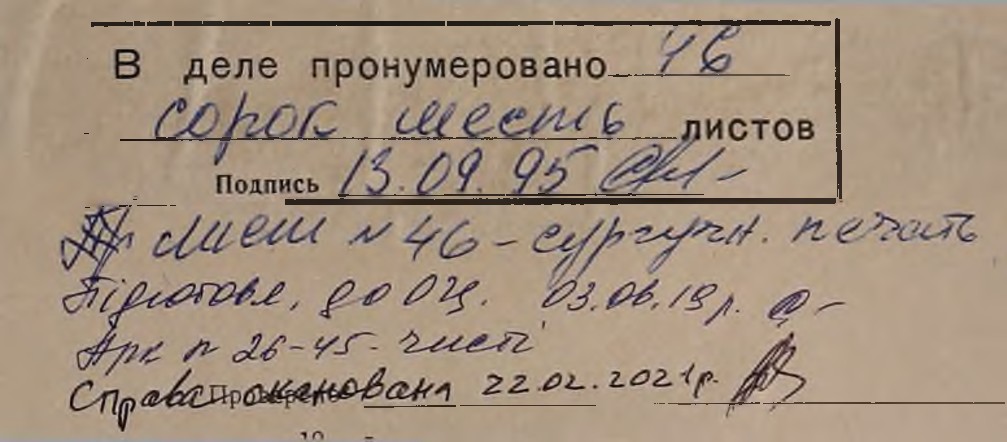 В деле пронумеровано 46
сорок шесть листов
Подпись 13.09.95
лист № 46 - сургучн. печать
Підготовл. до ОЦ. 03.06.19 р.
Арк № 26-45 - чисті
Справа сканована 22.02.2021р.
19